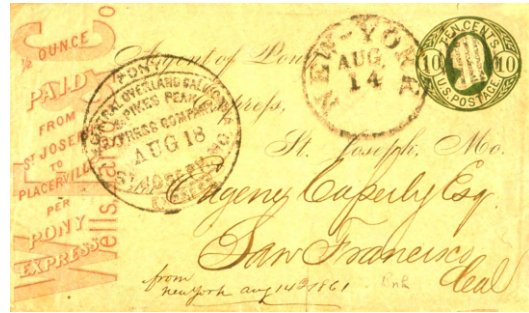 ½ OUNCE
PAID
FROM
ST JOSEPH
TO
PLACERVILLE
PER
PONY
EXPRESS
Wells, Fargo & Co
PONY
CENTRAL OVERLAND CALIFORNIA
& PIKES PEAK
EXPRESS COMPANY
AUG 18
ST. JOSEPH MO.
EXPRESS
NEW-YORK
AUG.
14
TEN CENTS
10 10
U.S. POSTAGE
Agent of Pony
Express,
St. Joseph, Mo.
Eugene Casserly Esq.
San Francisco
Cal
from
new york aug 14th 1861